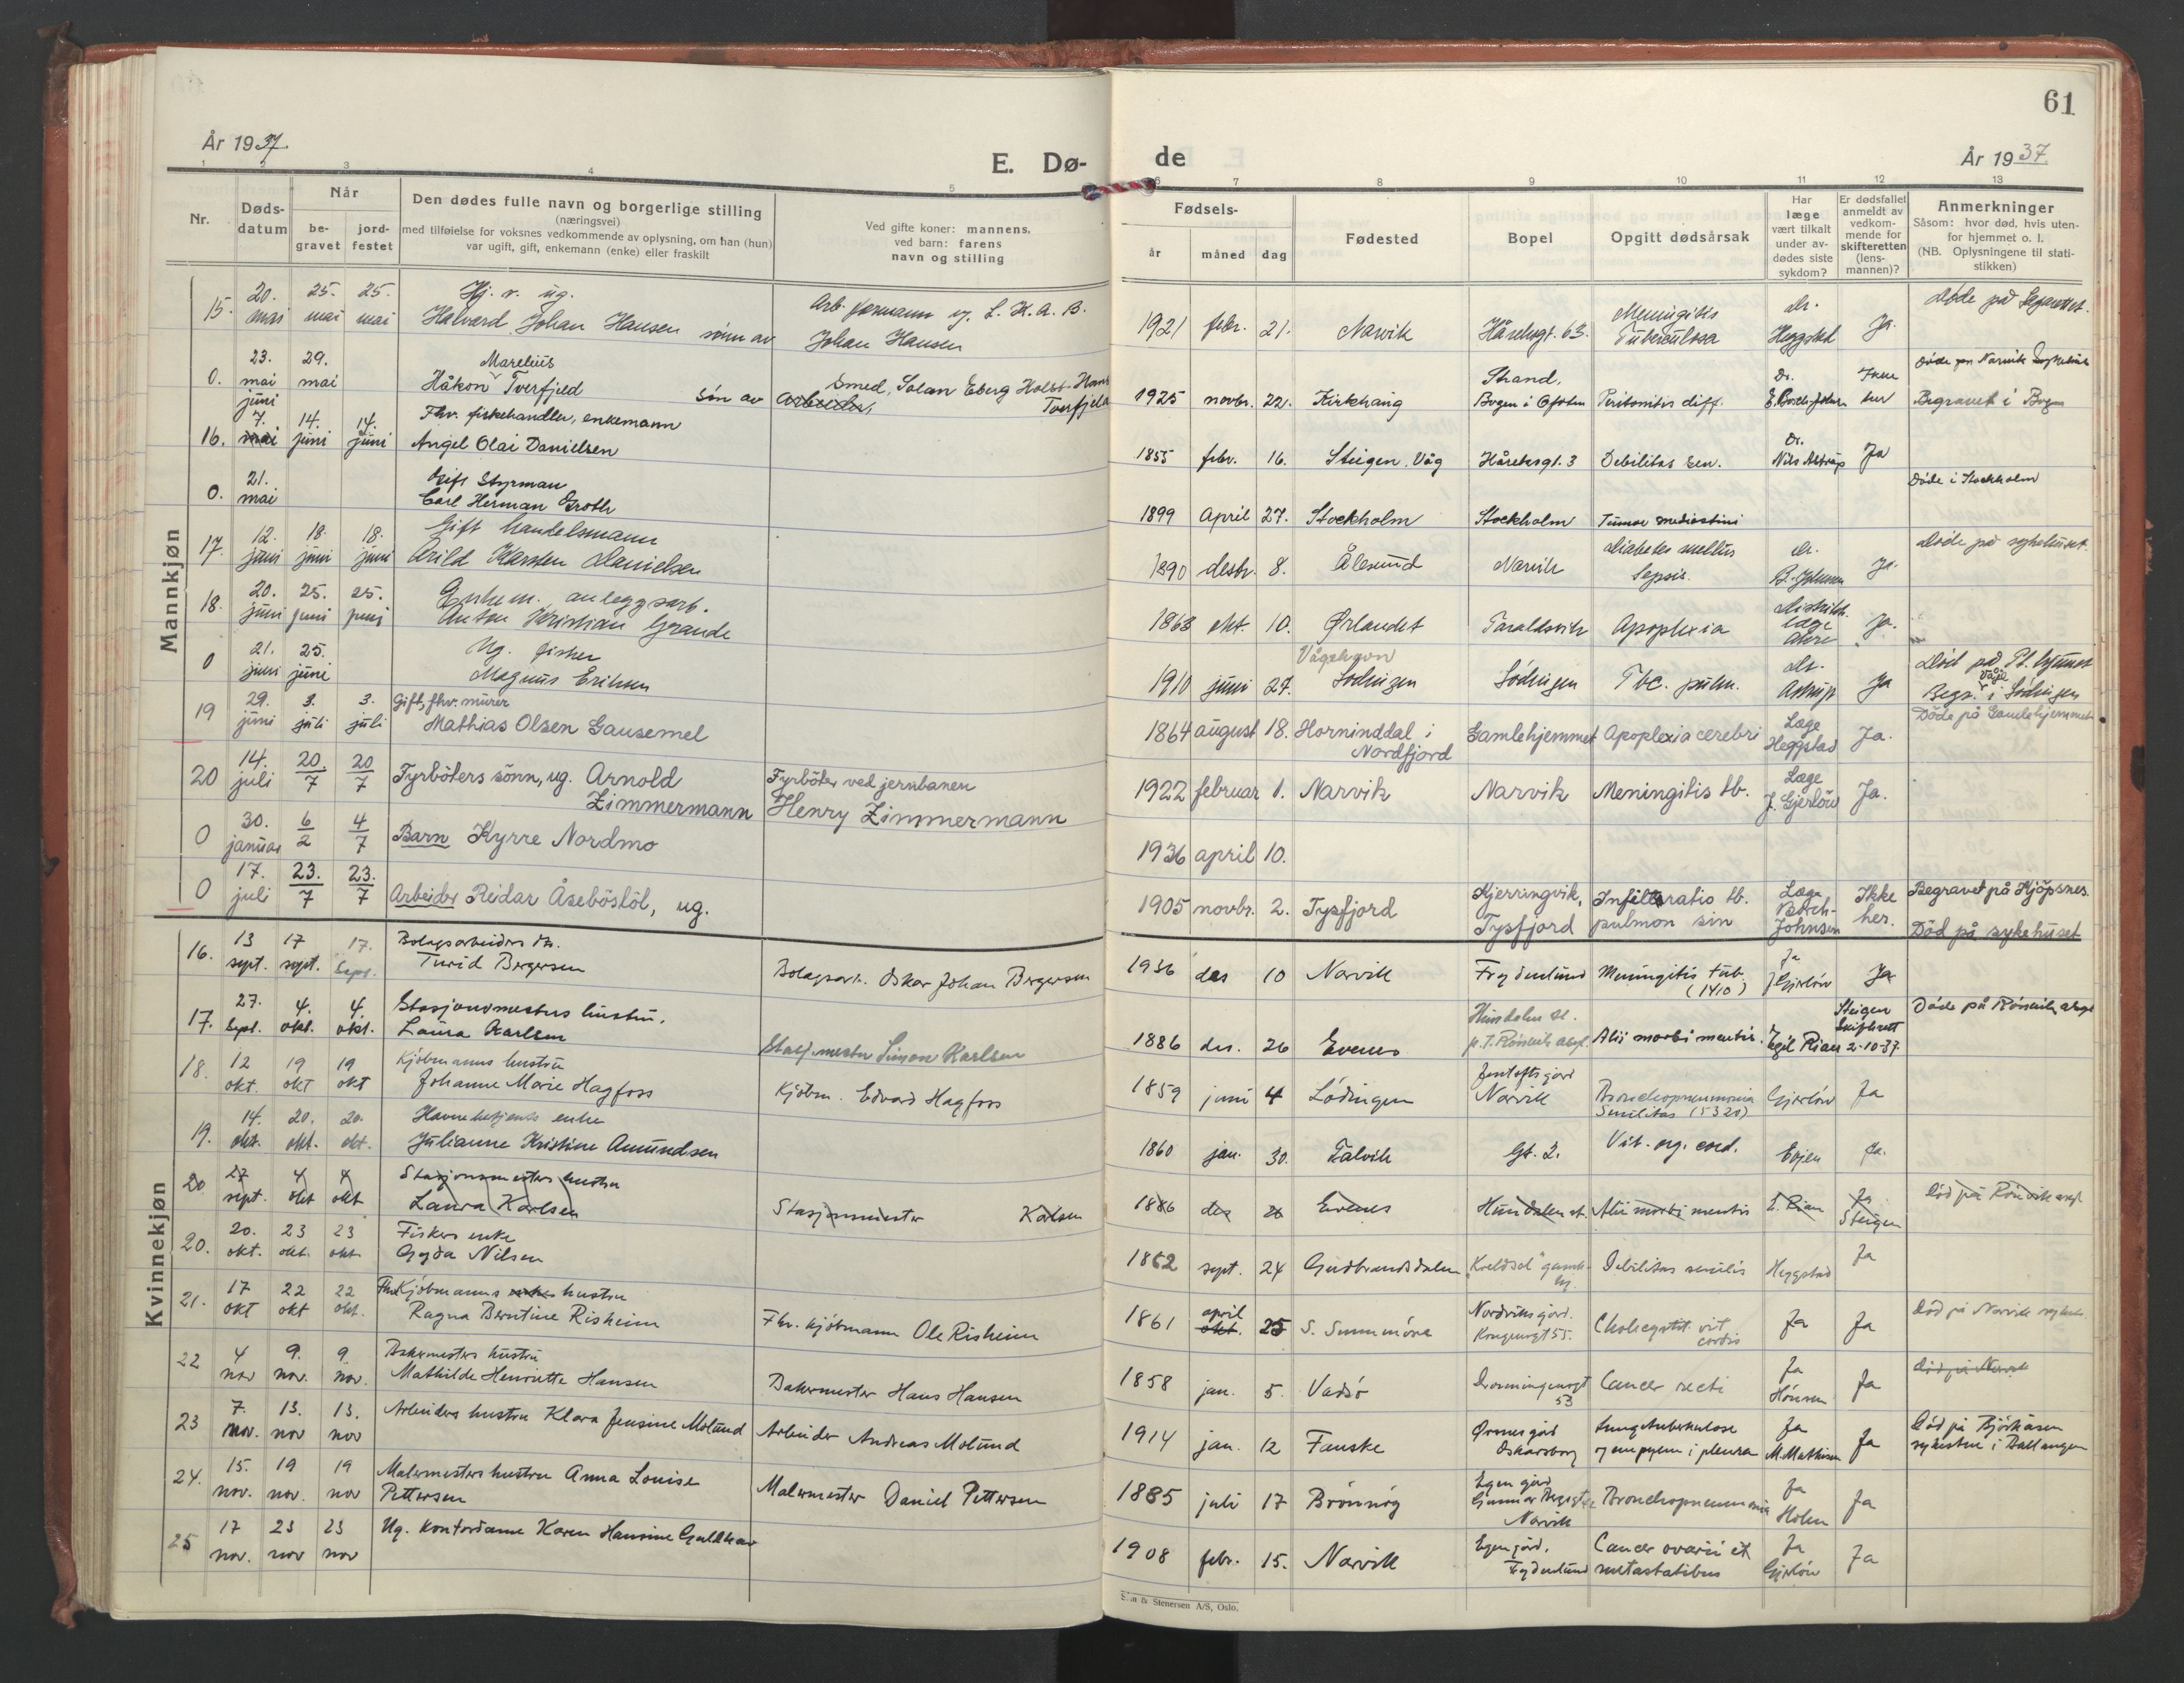 61
År 1937.
E. Dø-
de
År 1937.
1 2 3 4 5 6 7 8 9 10 11 12 13
Nr.
Døds-
datum
Når
be-
gravet
jord-
festet
Den dødes fulle navn og borgerlige stilling
(næringsvei)
med tilføielse for voksnes vedkommende av oplysning, om han (hun)
var ugift, gift, enkemann (enke) eller fraskilt
Ved gifte koner: mannens,
ved barn: farens
navn og stilling
Fødsels-
år
måned
dag
Fødested
Bopel
Opgitt dødsårsak
Har
læge
vært tilkalt
under av-
dødes siste
sykdom?
Er dødsfallet
anmeldt av
vedkom-
mende for
skifteretten
(lens-
mannen)?
Anmerkninger
Såsom: hvor død, hvis uten-
for hjemmet o. l.
(NB. Oplysningene til stati-
stikken)
Mannkjøn
15. 20. mai 25. mai 25. mai
Halvard Johan Hansen sønn av
Arb. formann v. L.K.A.B.
Johan Hansen
1921 febr. 21. Narvik Håreksgt. 63. Meningitis Tuberculosa Dr. Heggstad Ja.
0. 23. mai 29. mai
Marelius
Håkon Tverfjeld søn av
Smed, Solan Eberg Holst Hans
arbeider, Tverfjeld
1925 novbr. 22. Kirkhaug Strand, Bogen i Ofoten Peritonitis diff. Dr. Døde på Narvik Sykehus Begravet i Bogen
16. 7. juni mai 14. juni 14. juni
Fhv. fiskehandler, enkemann
Angel Olai Danielsen
1855 febr. 16. Steigen. Våg Håreksgt. 3 Debilitas sen. Dr. Nils Astrup Ja
0. 21. mai
Gift Styrman
Carl Herman Groth
1899 April 27. Stockholm Stockholm Tumor mediastini Døde i Stockholm
17. 12. juni 18. juni 18. juni
Gift handelsmann
Arild Karsten Danielsen
1890 desbr. 8. Ålesund Narvik Diabetes mellitus Sepsis. Dr. B. Johnsen Ja. Døde på sykehuset.
18. 20. juni 25. juni 25. juni
Enkem. anleggsarb.
Anton Kristian Grande
1868 okt. 10. Ørlandet Taraldsvik Apoplexia Distrikts læge Ja.
0 21. juni 25. juni
Ug. fisker
Magnus Eriksen
1910 juni 27. Vågehavn Lödingen Lödingen Tbc. pulm. Dr. Astrup Ja
Død på Pl. hjemmet
Begr. i Lödingen
19 29. juni 3. juli 3. juli
Gift, fhv. murer
Mathias Olsen Gausemel
1864 august 18. Horninddal i Nordfjord Gamlehjemmet Apoplexia cerebri Læge Heggstad Ja. Döde på Gamlehjemmet
20 14. juli 20/7 20/7
Fyrböters sönn, ug. Arnold
Zimmermann
Fyrböter ved jernbanen
Henry Zimmermann
1922 februar 1. Narvik Narvik Meningitis tb. Læge J. Gjerlöw Ja.
0 30. januar 6/2 4/7
Barn Kyrre Nordmo
1936 april 10.
0 17. juli 23./7 23./7
Arbeider Reidar Åseböstöl, ug.
1905 novbr. 2. Tysfjord Kjerringvik, Tysfjord Infiltratio tb. pulmon sin Læge Borch-Johnsen Ikke her. Begravet på Kjöpsnes.
Död på sykehuset
Kvinnekjøn
16. 13 sept. 17 sept. 17. sept.
Bolagsarbeiders dt.
Turid Bergersen
Bolagsarb. Oskar Johan Bergersen
1936 des 10 Narvik Frydenlund Meningitis tub. (1410) Ja J Gjerlöw Ja
17. 27. sept. 4. okt. 4. okt.
Stasjonsmesters hustru.
Laura Karlsen
Stasj.mester Simon Karlsen
1886 des. 26 Evenes Hundalen st. p.t. Rönvik asyl. Alii morbi mentis. Egil Rian Steigen Skifterett 2-10-37. Döde på Rönvik asyl
18. 12 okt. 19 okt 19 okt
Kjöbmanns hustru
Johanne Marie Hagfoss
Kjöbm. Edvard Hagfoss
1859 juni 4 Lödingen Narvik Bronchopneumonia Senilitas (5320) Gjerlöw Ja
19. 14. okt. 20. okt. 20. okt.
Havnebetjents enke
Julianne Kristine Amundsen
1860 jan. 30. Talvik Gt. 2. Vit. org. cord. Evjen Ja.
20 27 sept. 4 okt 4 okt
Stasjonsmesters hustru
Laura Karlsen
Stasjonsmester Karlsen
1886 des 26 Evenes Hundalen st. Alii morbi mentis E. Rian Ja Steigen Död på Rönvik asyl.
20. 20. okt. 23 okt. 23 okt.
Fiskers enke
Gyda Nilsen
1862 sept. 24 Gudbrandsdalen "Kveldsol" gamlehj. Debilitas senilis Heggstad Ja
21. 17 okt 22 okt 22 okt.
Fhv. Kjöbmanns enke hustru
Ragna Berntine Risheim
Fhv. kjöbmann Ole Risheim
1861 april okt. 25 S. Sunnmöre Nordviksgård. Kongensgt 55. Cholecystit. vit cordis Ja Ja Död på Narvik sykeh.
22 4 nov 9. nov. 9. nov.
Bakermesters hustru
Mathilde Henriette Hansen
Bakermester Hans Hansen
1858 jan. 5. Vadsö Dronningensgt 53 Cancer recti Ja Ja Död på Narvik
23 7. nov. 13. nov 13. nov
Arbeiders hustru Klara Jensine Molund
Arbeider Andreas Molund
1914 jan. 12 Fauske Ornesgård Oskarsborg Lungetuberkulose og empyem i pleura Ja M. Mathisen Ja Död på Bjørkåsen sykestue i Ballangen
24. 15. nov. 19 nov. 19 nov
Malermesters hustru Anna Louise
Pettersen
Malermester Daniel Pettersen
1885 juli 17 Brönnöy Egen gård Narvik Bronchopneumonia Ja Holm Ja
25 17 nov. 23 nov 23 nov
Ug. Kontordame Karen Hansine Guldhav
1908 febr. 15. Narvik Egen gård. Frydenlund Cancer ovarii et metastatibus Ja Gjerlöw Ja
& Stenersen A/S, Oslo.